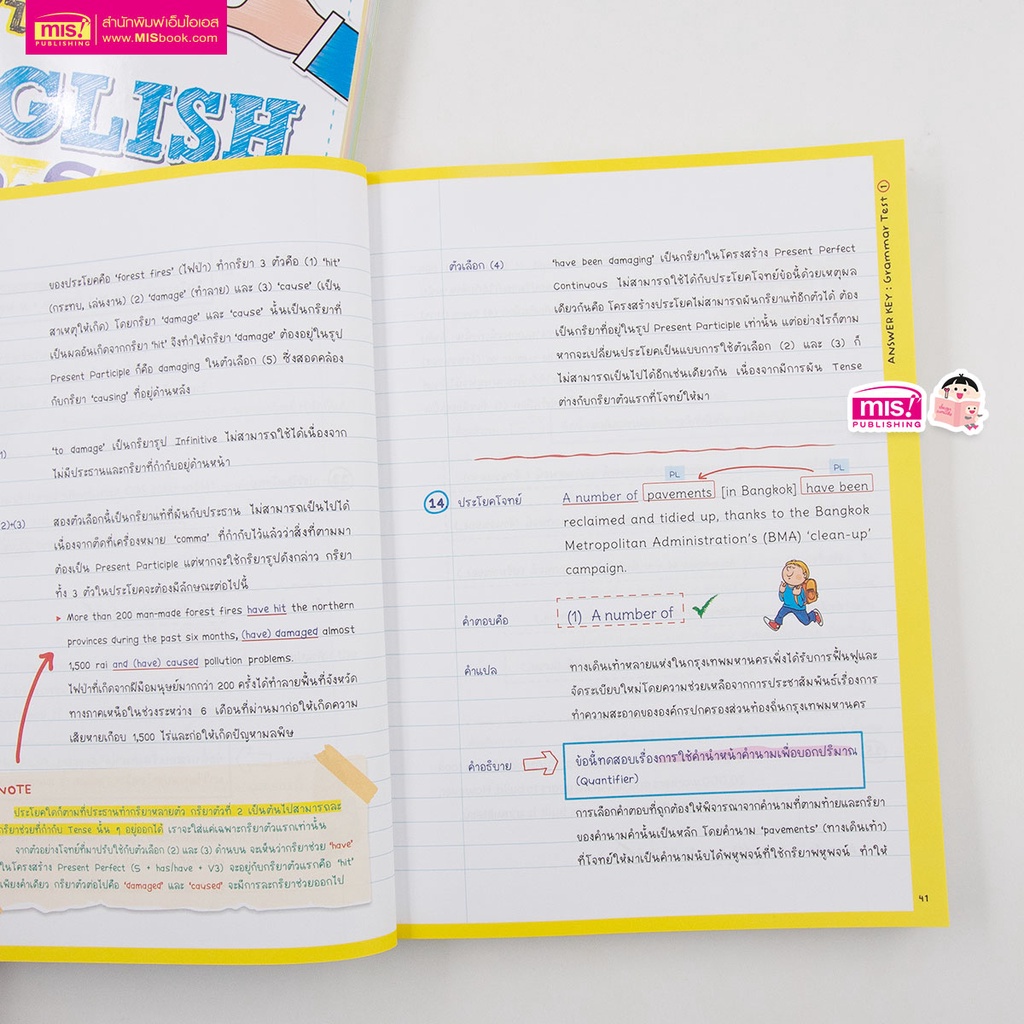 mis!
PUBLISHING
สำนักพิมพ์เอ็มไอเอส
www.MISbook.com
GLISH
ของประโยคคือ 'forest fires' (ไฟป่า) ทำกริยา 3 ตัวคือ (1) 'hit'
(กระทบ, เล่นงาน) (2) 'damage' (ทำลาย) และ (3) 'cause' (เป็น
สาเหตุให้เกิด) โดยกริยา 'damage' และ 'cause' นั้นเป็นกริยาที่
เป็นผลอันเกิดจากกริยา 'hit' จึงทำให้กริยา 'damage' ต้องอยู่ในรูป
Present Participle ก็คือ damaging ในตัวเลือก (5) ซึ่งสอดคล้อง
กับกริยา 'causing' ที่อยู่ด้านหลัง
1) 'to damage' เป็นกริยารูป Infinitive ไม่สามารถใช้ได้เนื่องจาก
ไม่มีประธานและกริยาที่กำกับอยู่ด้านหน้า
2)+(3) สองตัวเลือกนี้เป็นกริยาแท้ที่ผันกับประธาน ไม่สามารถเป็นไปได้
เนื่องจากติดที่เครื่องหมาย 'comma' ที่กำกับไว้แล้วว่าสิ่งที่ตามมา
ต้องเป็น Present Participle แต่หากจะใช้กริยารูปดังกล่าว กริยา
ทั้ง 3 ตัวในประโยคจะต้องมีลักษณะต่อไปนี้
More than 200 man-made forest fires have hit the northern
provinces during the past six months, (have) damaged almost
1,500 rai and (have) caused pollution problems.
ไฟป่าที่เกิดจากฝีมือมนุษย์มากกว่า 200 ครั้งได้ทำลายพื้นที่จังหวัด
ทางภาคเหนือในช่วงระหว่าง 6 เดือนที่ผ่านมาก่อให้เกิดความ
เสียหายเกือบ 1,500 ไร่และก่อให้เกิดปัญหามลพิษ
NOTE
ประโยคใดก็ตามที่ประธานทำกริยาหลายตัว กริยาตัวที่ 2 เป็นต้นไปสามารถละ
กริยาช่วยที่กำกับ Tense นั้น ๆ อยู่ออกได้ เราจะใส่แค่เฉพาะกริยาตัวแรกเท่านั้น
จากตัวอย่างโจทย์ที่มาปรับใช้กับตัวเลือก (2) และ (3) ด้านบน จะเห็นว่ากริยาช่วย 'have'
ในโครงสร้าง Present Perfect (S + has/have + V3) จะอยู่กับกริยาตัวแรกคือ 'hit'
เพียงคำเดียว กริยาตัวต่อไปคือ 'damaged' และ 'caused' จะมีการละกริยาช่วยออกไป
ตัวเลือก (4) 'have been damaging' เป็นกริยาในโครงสร้าง Present Perfect
Continuous ไม่สามารถใช้ได้กับประโยคโจทย์ข้อนี้ด้วยเหตุผล
เดียวกันคือ โครงสร้างประโยคไม่สามารถผันกริยาแท้อีกตัวได้ ต้อง
เป็นกริยาที่อยู่ในรูป Present Participle เท่านั้น แต่อย่างไรก็ตาม
หากจะเปลี่ยนประโยคเป็นแบบการใช้ตัวเลือก (2) และ (3) ก็
ไม่สามารถเป็นไปได้อีกเช่นเดียวกัน เนื่องจากมีการผัน Tense
ต่างกับกริยาตัวแรกที่โจทย์ให้มา
PL PL
14 ประโยคโจทย์ A number of pavements [in Bangkok] have been
reclaimed and tidied up, thanks to the Bangkok
Metropolitan Administration's (BMA) 'clean-up'
campaign.
คำตอบคือ (1) A number of
คำแปล ทางเดินเท้าหลายแห่งในกรุงเทพมหานครเพิ่งได้รับการฟื้นฟูและ
จัดระเบียบใหม่โดยความช่วยเหลือจากการประชาสัมพันธ์เรื่องการ
ทำความสะอาดขององค์กรปกครองส่วนท้องถิ่นกรุงเทพมหานคร
คำอธิบาย ข้อนี้ทดสอบเรื่องการใช้คำนำหน้าคำนามเพื่อบอกปริมาณ
(Quantifier)
การเลือกคำตอบที่ถูกต้องให้พิจารณาจากคำนามที่ตามท้ายและกริยา
ของคำนามคำนั้นเป็นหลัก โดยคำนาม 'pavements' (ทางเดินเท้า)
ที่โจทย์ให้มาเป็นคำนามนับได้พหูพจน์ที่ใช้กริยาพหูพจน์ ทำให้
41
ANSWER KEY : Grammar Test 1
mis!
PUBLISHING